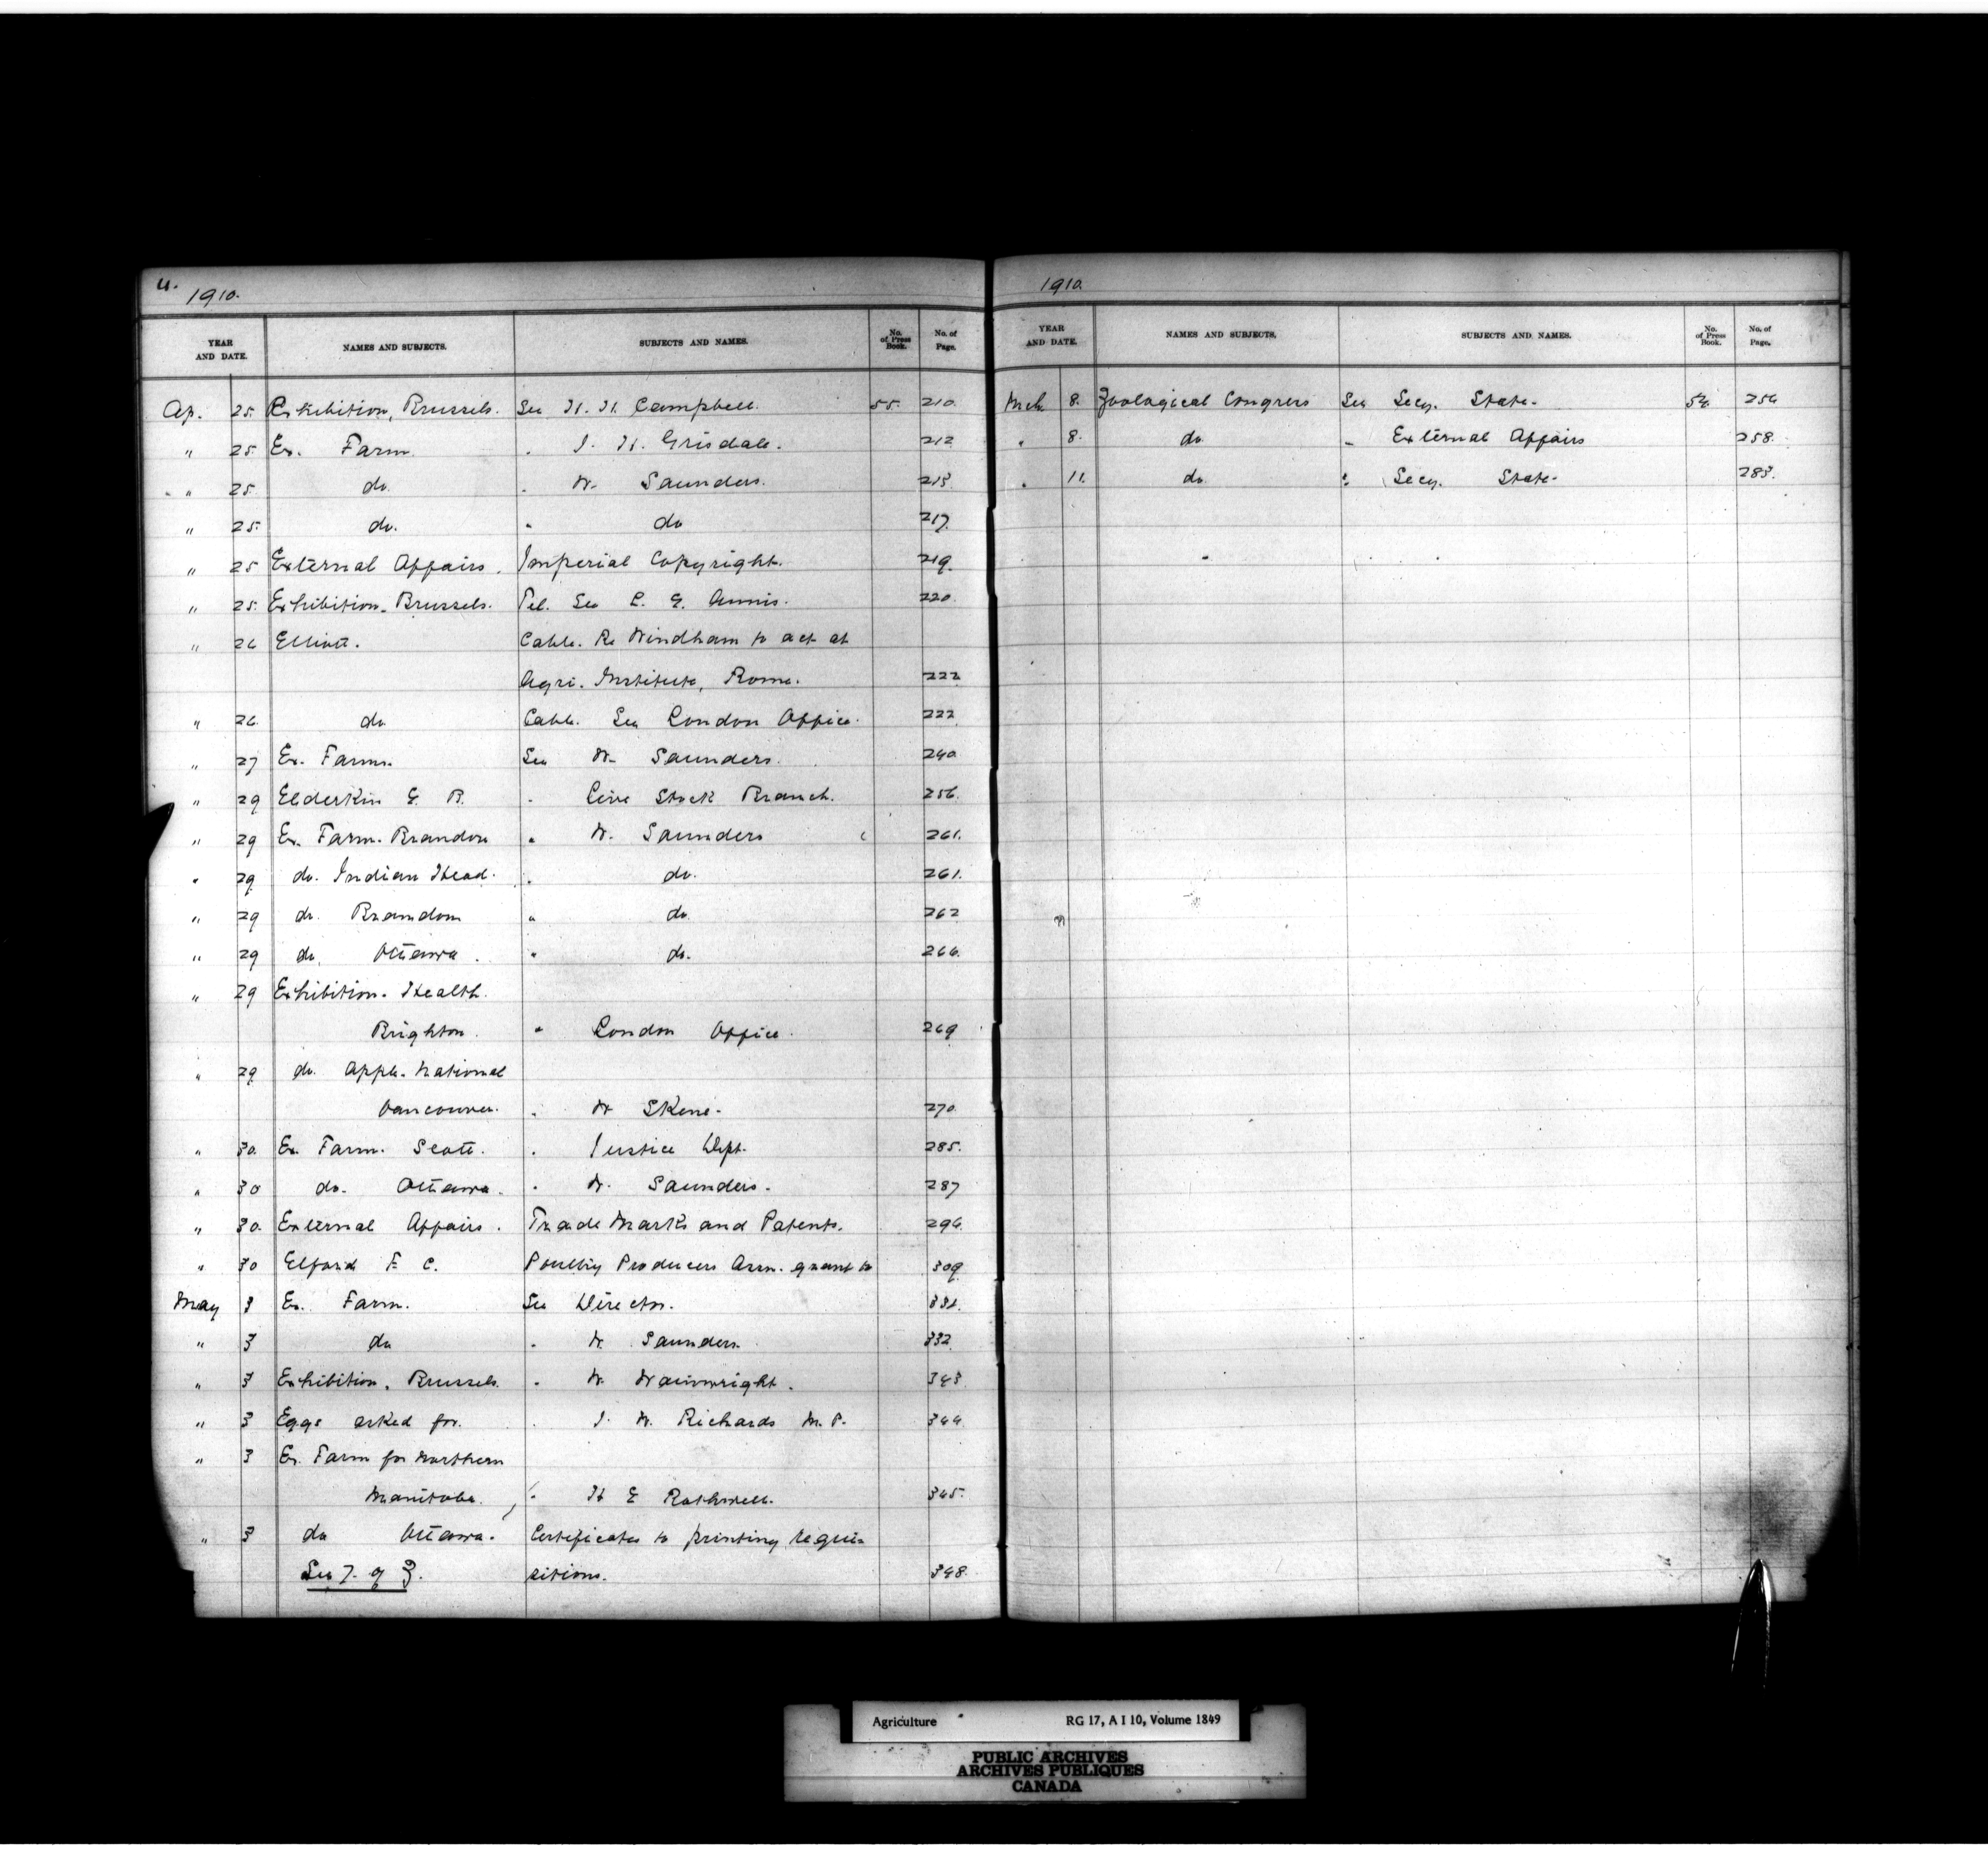 4.
1910.
YEAR AND DATE. NAMES AND SUBJECTS. SUBJECTS AND NAMES. No. of Press Book. No. of Page.
Ap. 25. Exhibition, Brussels. See H. H. Campbell. 55. 210.
" 25. Ex. Farm. " J. H. Grisdale. 212
" 25. do. " W. Saunders. 213
" 25. do. " do 217.
" 25 External Affairs. Imperial Copyright. 219.
" 25. Exhibition. Brussels. Tel. See L. E. Annis. 220.
" 26 Elliott. Cable. Re Windham to act at
Agri. Institute, Rome. 222
" 26. do. Cable. See London Office. 222
" 27 Ex. Farms. See W. Saunders. 240.
" 29 Elderkin E. B. " Live Stock Branch. 256.
" 29 Ex. Farm. Brandon " W. Saunders 261.
" 29 do. Indian Head. " do. 261.
" 29 do. Brandon " do. 262
" 29 do. Ottawa. " do. 266.
" 29 Exhibition. Health.
Brighton. " London Office. 269
" 29 do. Apple. National
Vancouver. " W Skene. 270
" 30. Ex. Farm. Scott. " Justice Dept. 285.
" 30 do. Ottawa. " W. Saunders. 287
" 30. External Affairs. Trade Marks and Patents. 296.
" 30 Elford F. C. Poultry Producers Assn. grant to 309
May 3 Ex. Farm. See Director. 331.
" 3 do " W. Saunders. 332.
" 3 Exhibition, Brussels. " W Wainwright. 343
" 3 Eggs asked for. " J. W. Richards M.P. 344
" 3 Ex. Farm for Northern
Manitoba. " H E Rothwell. 345.
" 3 do Ottawa. Certificates to printing requi-
See 7. of Z. sitions. 348.
1910.
YEAR AND DATE. NAMES AND SUBJECTS. SUBJECTS AND NAMES. No. of Press Book. No. of Page.
Mch. 8. Zoological Congress See Secy. State. 54. 256
" 8. do. " External Affairs 258.
" 11. do. " Secy. State. 283.
Agriculture RG 17, A I 10, Volume 1849
PUBLIC ARCHIVES
ARCHIVES PUBLIQUES
CANADA